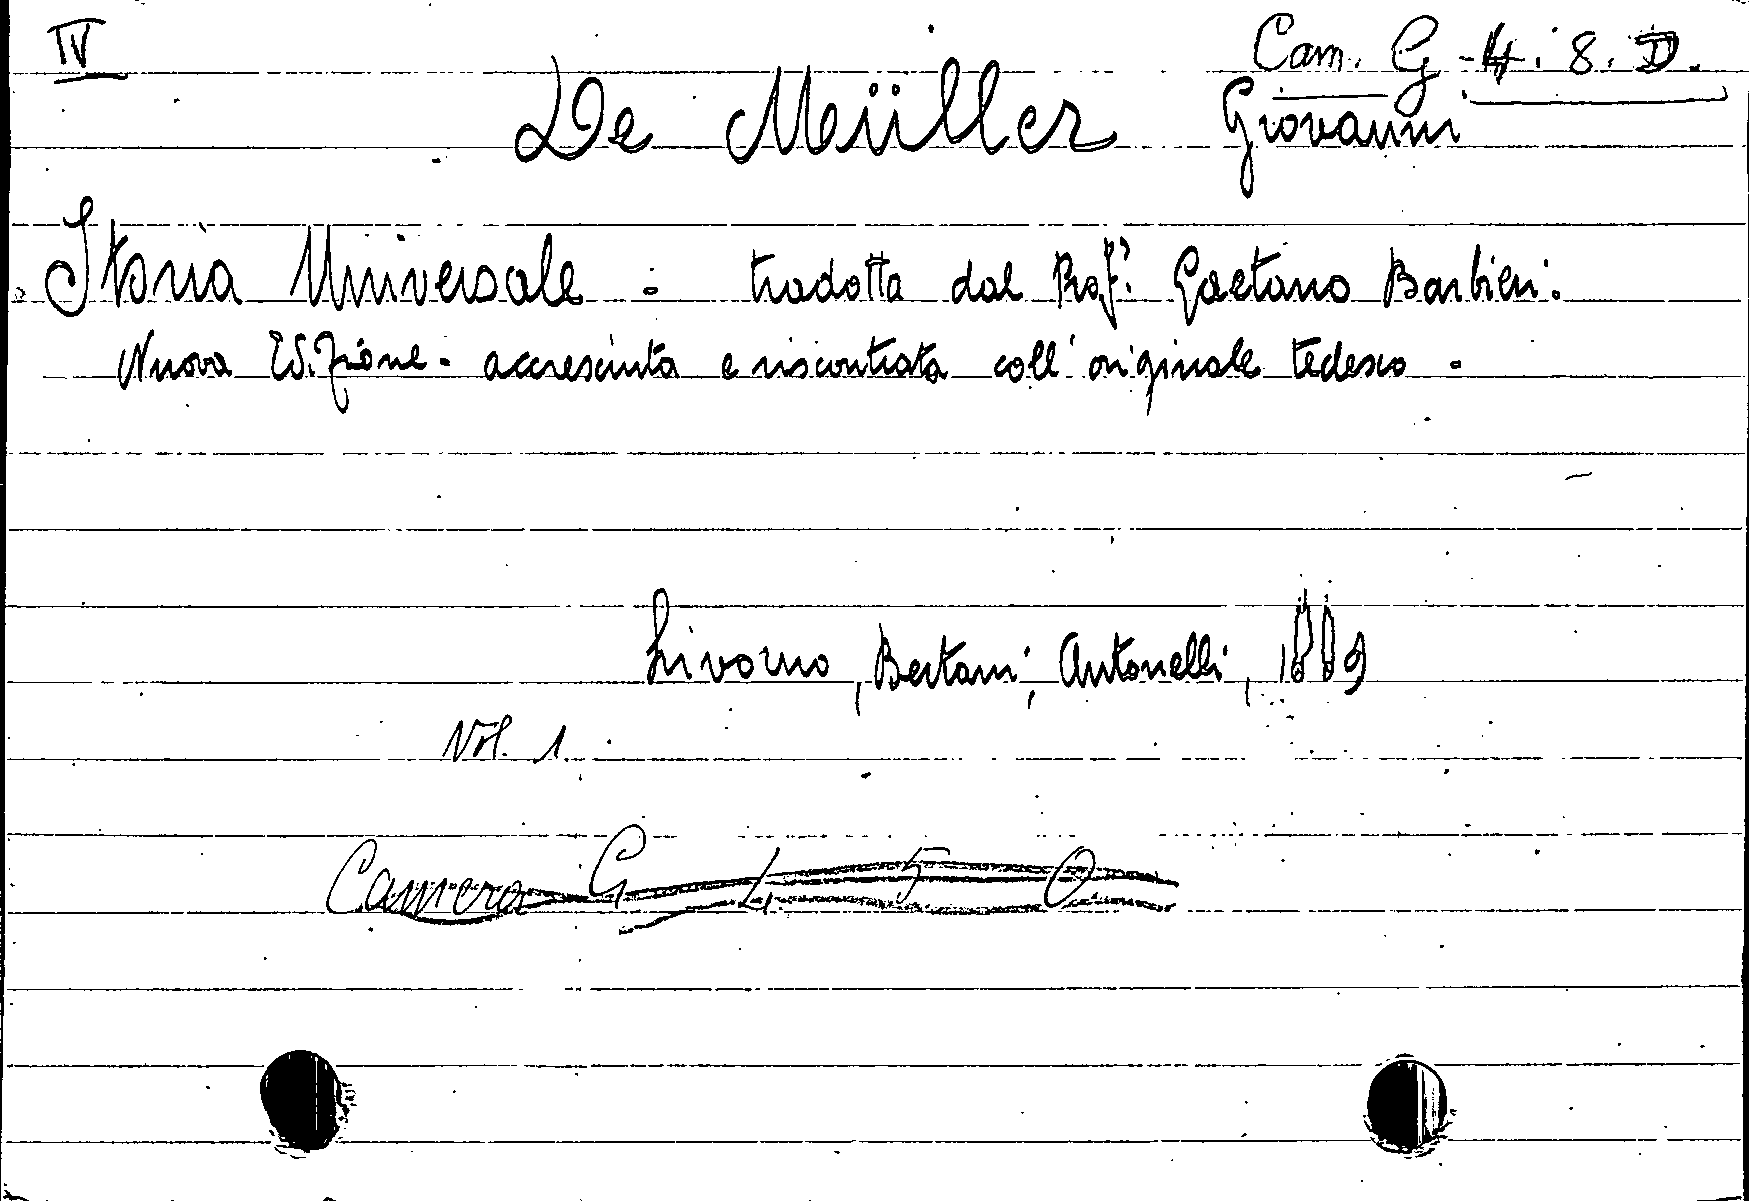 IV
Cam. G - 4. 8. D.
De Müller Giovanni
Storia Universale - tradotta dal Prof. Gaetano Barbieri.
Nuova Edizione - accresciuta e riscontrata coll'originale tedesco -
Livorno, Bertani, Antonelli,
Vol. 1.
Camera G 4 5 O